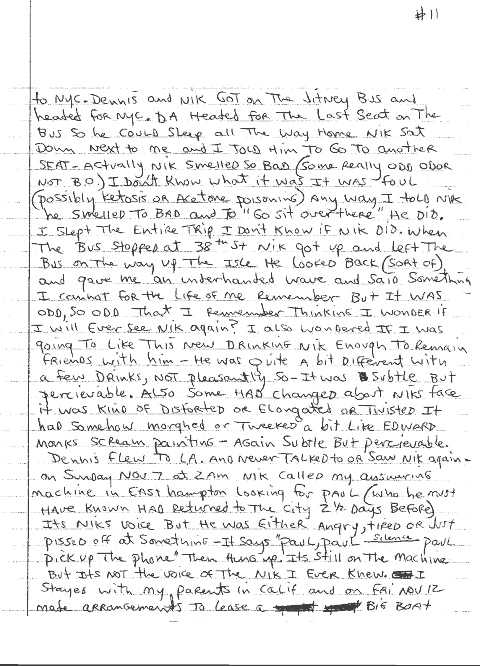 #11
to NYC. Dennis and NIK GOT on The Jitney Bus and
headed for NYC. DA Headed for The Last Seat on The
Bus So he COULD Sleep all The Way Home NIK Sat
Down Next to me and I TOLD Him To GO To another
SEAT - Actually NIK SMelled So BAD (Some Really ODD ODOR
NOT B.O.) I Don't Know what it was It was foul
(possibly ketosis or Acetone poisoning) Any way I told NIK
he SMelled To BAD and To "Go sit over there" He DID.
I Slept The Entire Trip I Don't Know if NIK DID. When
The Bus Stopped at 38th St NIK got up and Left The
Bus on The way up The Isle He looked Back (Sort of)
and gave me an underhanded wave and Said Something
I cannot for the Life of me Remember But IT WAS
ODD, SO ODD That I Remmember Thinking I Wonder if
I will Ever See NIK again? I also wondered If I was
going To Like This New DRINKING NIK Enough To Remain
friends with him - He was Quite A bit Different with
a few Drinks, NOT pleasantly So - It was Subtle But
percievable. Also Some HAD changed about NIKs face
it was KIND OF Distorted or Elongated or TWISTED It
had Somehow morghed or Tweeked a bit Like EDWARD
monks Scream painting - Again Subtle But percievable.
Dennis flew To LA. And Never Talked to or Saw Nik again -
on Sunday Nov 7 at 2AM NIK Called my answering
machine in East hampton Looking for paul (who he must
HAVE Known HAD Returned to The City 2½ Days Before)
Its NIKs Voice But He was Either Angry, tired or Just
pissed off at Something - It Says "paul, paul - Silence - paul
pick up The phone" Then Hung up. Its Still on The Machine
But Its NOT the voice of The NIK I Ever Knew. I
Stayes with my parents in Calif and on FRI NOV 12
made arrangements To Lease a BIG BOAT